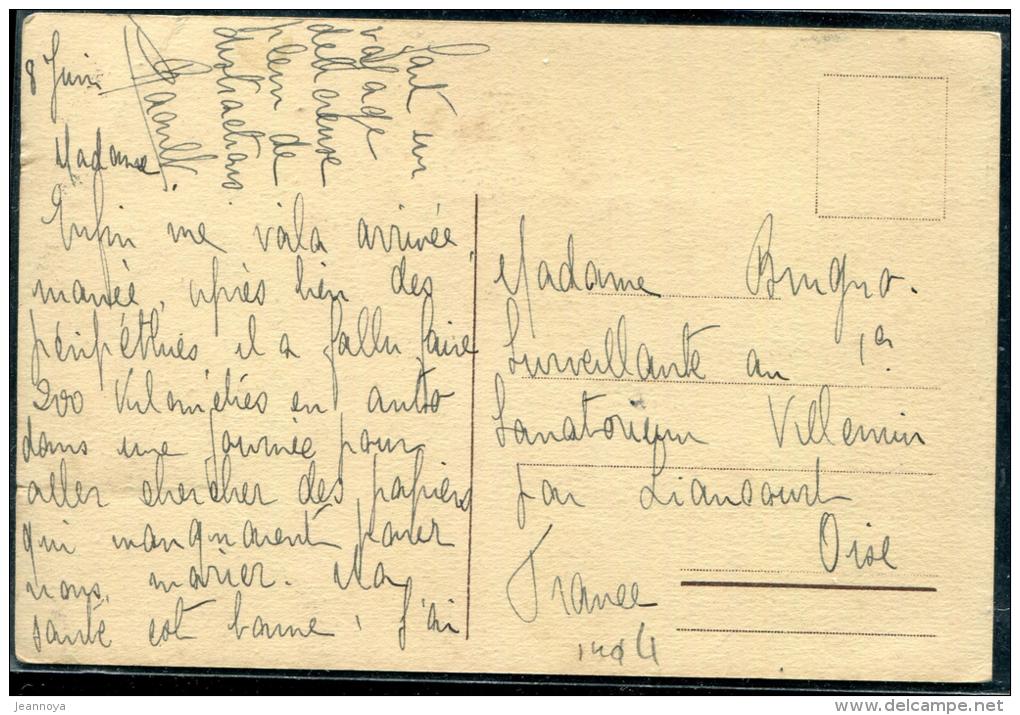 8 Juin
Madame.
Enfin me voila arrivée,
mariée, après bien des
péripéthies il a fallu faire
200 Kilométres en auto
dans une journée pour
aller chercher des papiers
qui manquaient pour
nous marier. Ma
santé est bonne, j'ai
fait un
voyage
delicieuse
plein de
distractions
Madame Brugno.
Surveillante au 1er
Sanatorium Villemin
par Liancourt
Oise
France
jeannoya
delcampe.net